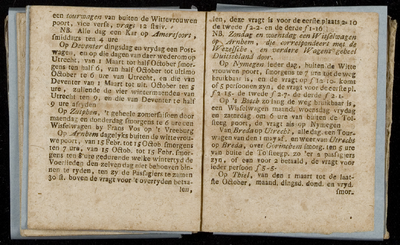 een tourwagen van buiten de Wittevrouwen
poort, vice verse, vragt 12 stuiv.
NB. Alle dag een Kar op Amersfoort,
smiddags ten 4 ure
Op Deventer dingsdag en vrydag een Post-
wagen, en op die dagen van deer wederom op
Utrecht, van 1 Maart tot half October smor-
gens ten half 6, van half October tot ultimo
October te 6 ure van Utrecht, en die van
Deventer van 1 Maart tot ult. October ten 5
ure, zullende die vier wintermaanden van
Utrecht ten 9, en die van Deventer te half
9 ure afryden
Op Zutphen, 't geheele zomersaisoen door
maandag en donderdag smorgens te 6 ure een
Wafelwagen by Frans Vos op 't Vreeburg
Op Arnhem dagelyks buiten de wittevrou-
we poort, van 15 Febr. tot 15 Octob smorgens
ten 7 ure, van 15 Octob. tot 15 Febr. smor-
gens ten 8 ure gedurende welke wintertyd de
Voerlieden den zelven dag niet behoeven bin-
nen te ryden, ten zy de Pasagiers te zamen
30 st. boven de vragt voor 't overryden betaa-
len,
len, deze vragt is voor de eerste plaats 2-10
de tweede f 2-2- en de derde f 1-16
NB. Zondag en woensdag een Wafelwagen
op Arnhem, die correspondeert met de
Wezelsche, en verdere Wagens geheel
Duitschland door.
Op Nymegen ieder dag, buiten de Witte
vrouwen poort, smorgens te 7 ure zo de weg
bruikbaar is, en de vragt op f 20-10. koms
of 5 persoonen zyn, de vragt voor de eerste pl.
f 2-15. de tweede f 2-7. de derde f 2.
Op 's Bosch zo lang de weg bruikbaar is,
een Wafelwagen maandag, woensdag vrydag
en saturdag om 6 ure van buiten de Tol-
steeg poort, de vragt als op Nymegen
Van Breda op Utrecht, alle dag een Tour-
wagen van den 1 may af, en weer van Utrecht
op Breda, over Gorinchem smorg. ten 5 ure
van buite de Tolsteegp. zo 'er 2 pasagiers
zyn, of een voor 2 betaald, de vragt voor
ieder persoon f 5-5-
Op Thiel, van den 1 maart tot de laat-
ste October, maand. dingsd. dond. en vryd.
smor.